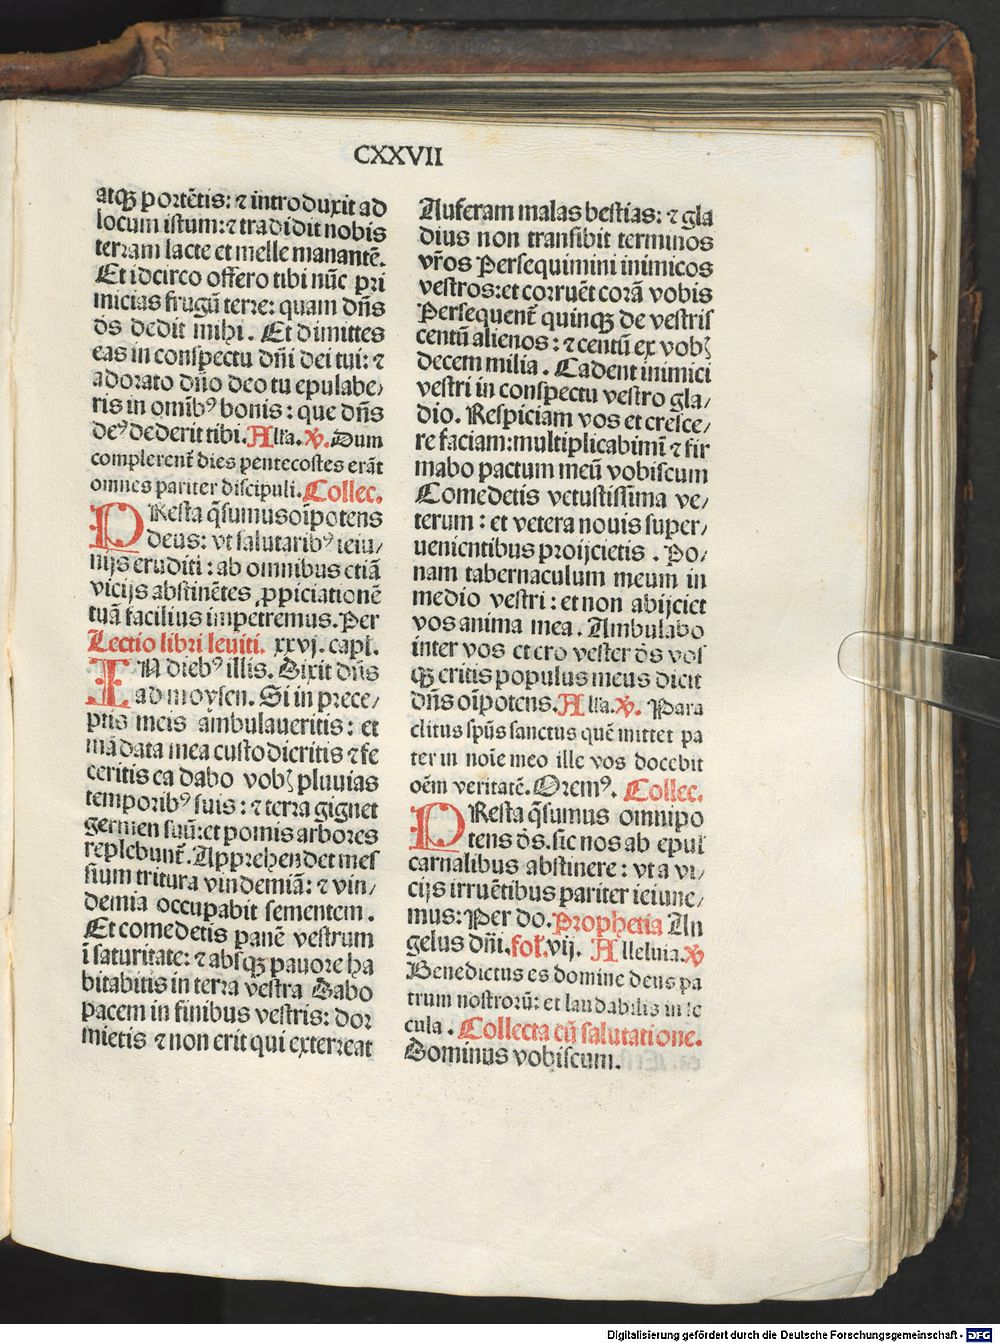 CXXVII
atqꝫ portētis: ⁊ introduxit ad
locum istum: ⁊ tradidit nobis
terram lacte et melle manantē.
Et idcirco offero tibi nūc pri
micias frugū terre: quam dn̄s
ds̄ dedit mihi. Et dimittes
eas in conspectu dn̄i dei tui: ⁊
adorato dn̄o deo tu epulabe/
ris in omīb⁹ bonis: que dn̄s
de⁹ dederit tibi. All'a. ℣. Dum
complerent̄ dies pentecostes erāt
omnes pariter discipuli. Collec.
PResta q̄sumus oīpotens
deus: vt salutarib⁹ ieiu/
nijs eruditi: ab omnibus etiā
vicijs abstinētes ꝓpiciationē
tuā facilius impetremus. Per
Lectio libri leuiti. xxvj. capl.
IN dieb⁹ illis. Dixit dn̄s
ad moysen. Si in prece/
ptis meis ambulaueritis: et
mādata mea custodieritis ⁊ fe
ceritis ea dabo vobꝫ pluuias
temporib⁹ suis: ⁊ terra gignet
germen suū: et pomis arbores
replebunt̄. Apprehendet mes
sium tritura vindemiā: ⁊ vin/
demia occupabit sementem.
Et comedetis panē vestrum
ī saturitate: ⁊ absqꝫ pauore ha
bitabitis in terra vestra Dabo
pacem in finibus vestris: dor
mietis ⁊ non erit qui exterreat
Auferam malas bestias: ⁊ gla
dius non transibit terminos
vr̄os Persequimini inimicos
vestros: et corruēt corā vobis
Persequent̄ quinqꝫ de vestris
centū alienos: ⁊ centū ex vobꝫ
decem milia. Cadent inimici
vestri in conspectu vestro gla/
dio. Respiciam vos et cresce/
re faciam: multiplicabimī ⁊ fir
mabo pactum meū vobiscum
Comedetis vetustissima ve/
terum: et vetera nouis super/
uenientibus proijcietis. Po/
nam tabernaculum meum in
medio vestri: et non abijciet
vos anima mea. Ambulabo
inter vos et ero vester ds̄ vos
qꝫ eritis populus meus dicit
dn̄s oīpotens. All'a. ℣. Para
clitus sp̄us sanctus quē mittet pa
ter in noīe meo ille vos docebit
oēm veritatē. Orem⁹. Collec.
PResta q̄sumus omnipo
tens ds̄. sic nos ab epul'
carnalibus abstinere: vt a vi/
cijs irruētibus pariter ieiune/
mus: Per do. Prophetia An
gelus dn̄i. fol. vij. Alleluia. ℣
Benedictus es domine deus pa
trum nostrorū: et laudabilis in se
cula. Collecta cū salutatione.
Dominus vobiscum.
Digitalisierung gefördert durch die Deutsche Forschungsgemeinschaft - DFG